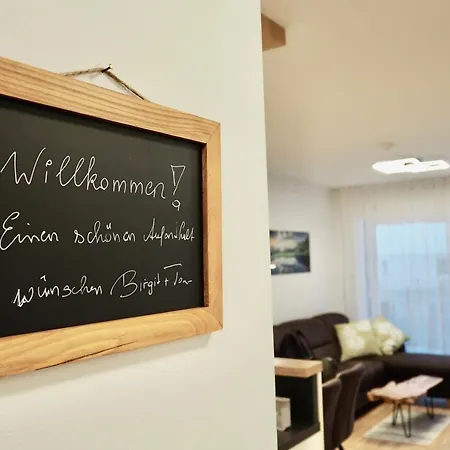 Willkommen!
Einen schönen Aufenthalt
wünschen Birgit +